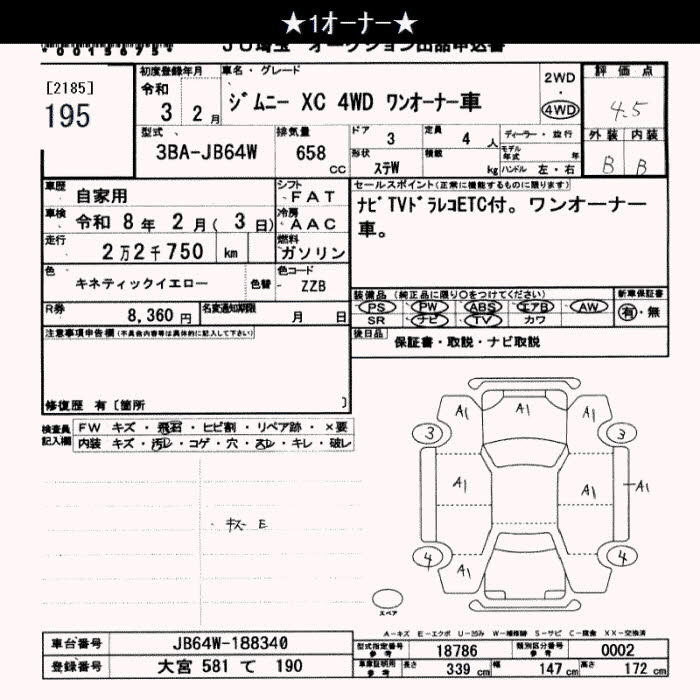 ★1オーナー★
*0015675*
JU埼玉 オークション出品申込書
[2185]
195
初度登録年月
令和
3 2月
車名・グレード
ジムニー XC 4WD ワンオーナー車
2WD
・
4WD
評価点
4.5
型式
3BA-JB64W
排気量
658
cc
ドア 3
定員 4 人
形状 ステW
積載 kg
ディーラー・並行
モデル年式 年
ハンドル 左・右
外装 内装
B B
車歴 自家用
シフト FAT
車検 令和 8年 2月( 3日)
冷房 AAC
走行 2万2千750 km
燃料 ガソリン
色 キネティックイエロー 色替
色コード ZZB
R券 8,360円
名変通知期限 月 日
セールスポイント(正常に機能するものに限ります)
ナビTVドラレコETC付。ワンオーナー
車。
装備品(純正品に限り○をつけてください)
PS PW ABS エアB AW
SR ナビ TV カワ
新車保証書
有・無
後日品 保証書・取説・ナビ取説
注意事項申告欄(不具合内容等は具体的に記入して下さい)
修復歴 有〔箇所 〕
検査員記入欄
FW キズ・飛石・ヒビ割・リペア跡・×要
内装 キズ・汚レ・コゲ・穴・スレ・キレ・破レ
・キズ E
A1 A1 A1
3 3
A1 A1 A1
4 4
A1
スペア
A-キズ E-エクボ U-凹み W-補修跡 S-サビ C-腐食 XX-交換済
車台番号 JB64W-188340
登録番号 大宮 581 て 190
型式指定番号 参考 18786
類別区分番号 参考 0002
車庫証明用 参考 長さ 339 cm 幅 147 cm 高さ 172 cm